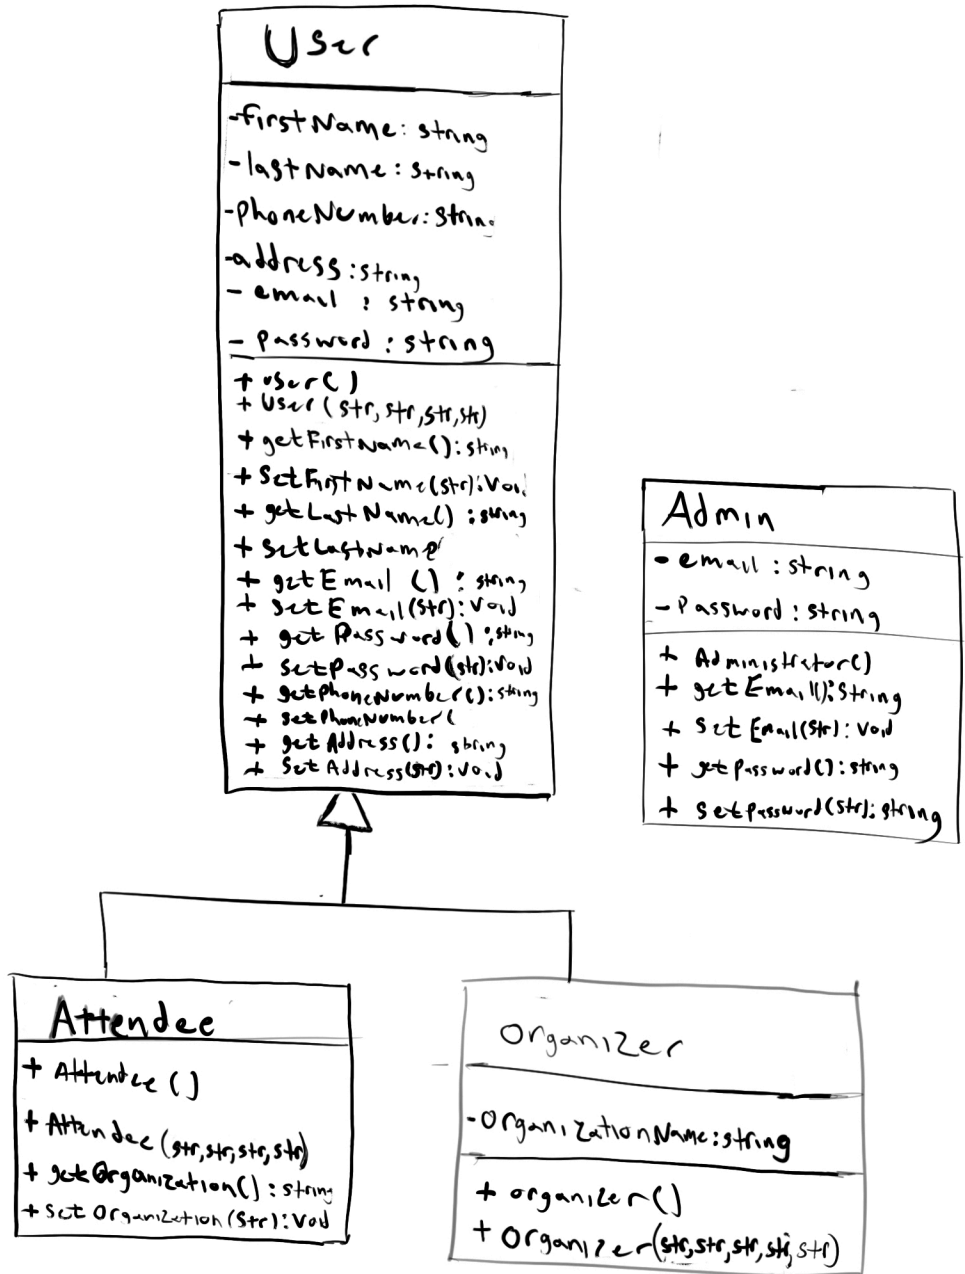 User
-firstName: string
-lastName: string
-phoneNumber: string
-address: string
- email : string
- password : string
+ user()
+ User (str, str, str, str)
+ getFirstName(): string
+ SetFirstName(str): Void
+ getLastName() : string
+ setLastName
+ getEmail () : string
+ setEmail(str): Void
+ getPassword() : string
+ setPassword(str): Void
+ getPhoneNumber(): string
+ setPhoneNumber(
+ getAddress(): string
+ SetAddress(str): Void
Admin
- email : string
- Password : string
+ Administrator()
+ getEmail(): String
+ SetEmail(Str): Void
+ getPassword(): string
+ SetPassword(str): string
Attendee
+ Attendee ()
+ Attendee (str, str, str, str)
+ getOrganization() : string
+ Set Organization (Str): Void
Organizer
-OrganizationName: string
+ organizer()
+ Organizer(str, str, str, str, str)